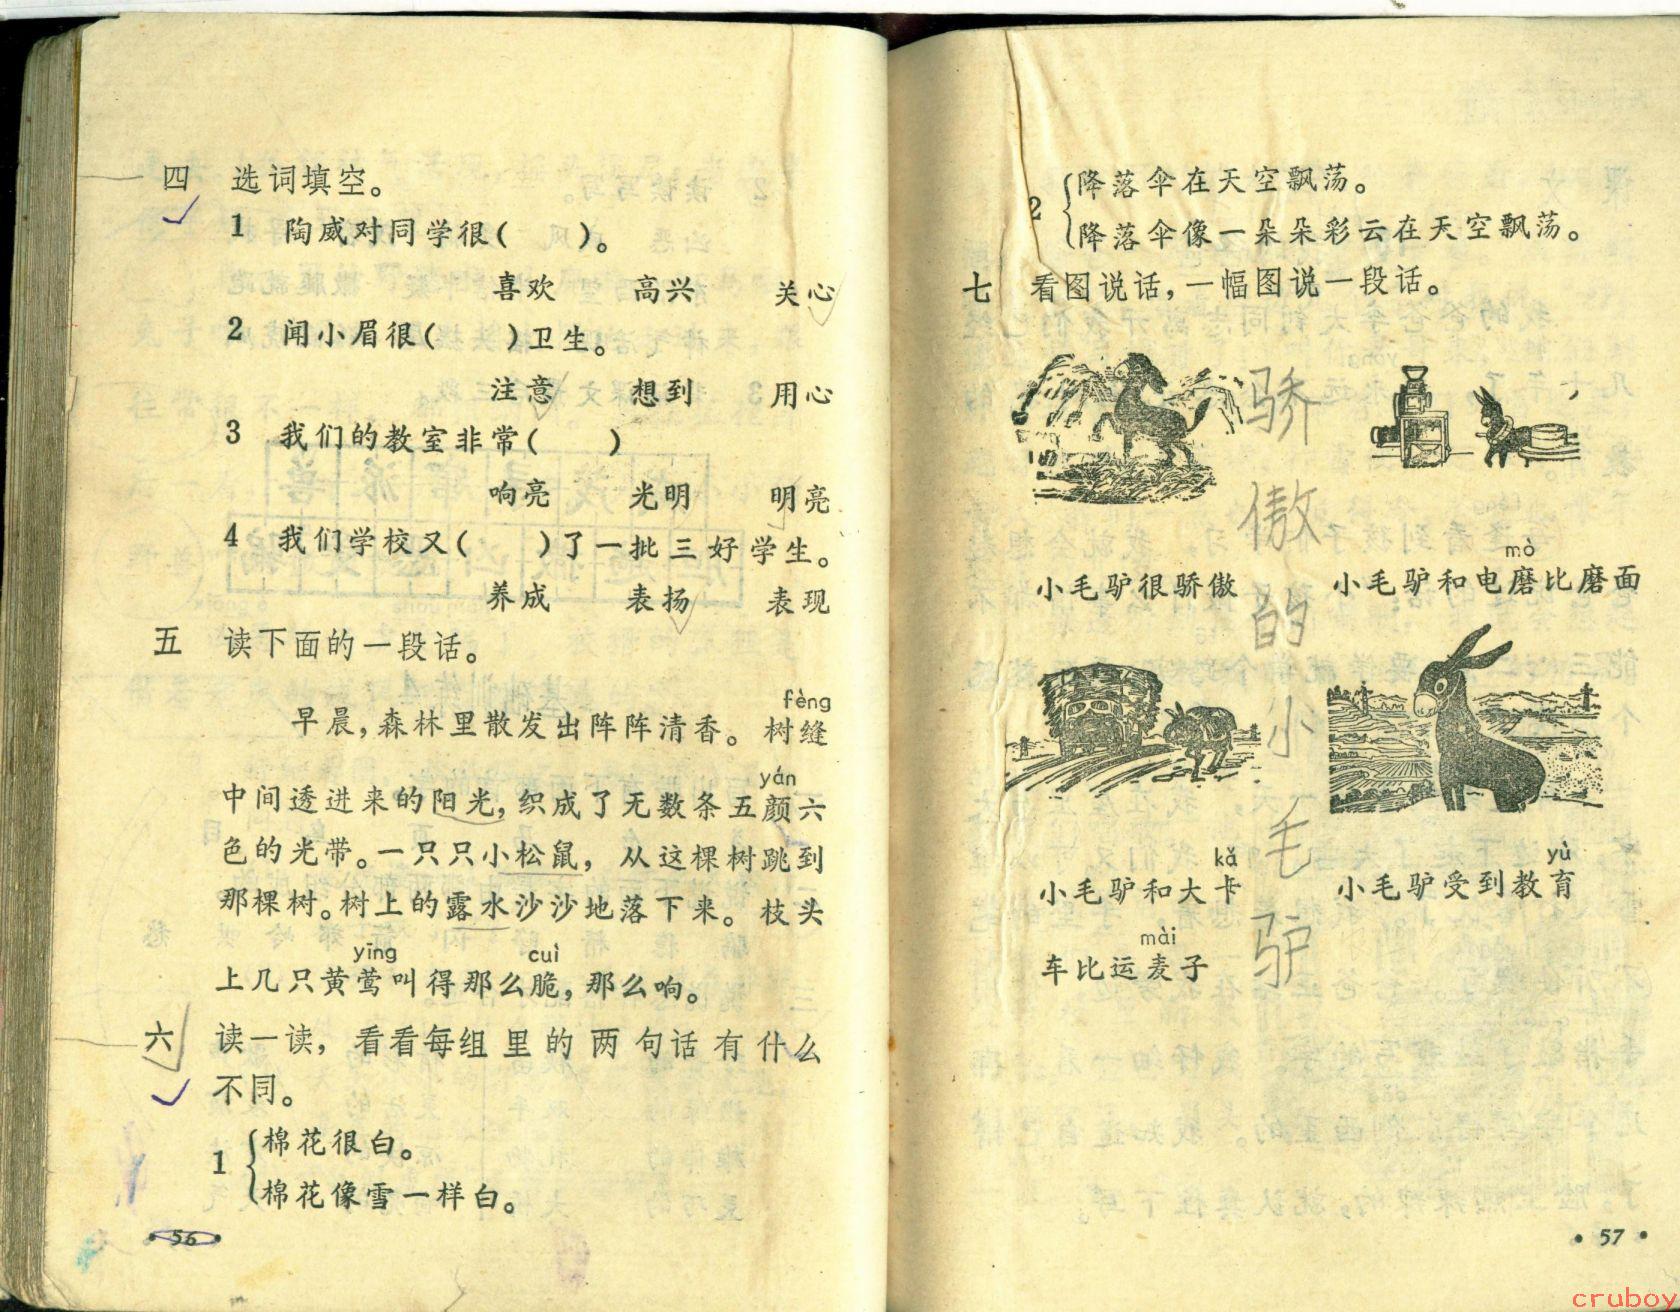 四 选词填空。
1 陶威对同学很( )。
喜欢 高兴 关心
2 闻小眉很( )卫生。
注意 想到 用心
3 我们的教室非常( )
响亮 光明 明亮
4 我们学校又( )了一批三好学生。
养成 表扬 表现
五 读下面的一段话。
fèng
早晨,森林里散发出阵阵清香。树缝
yán
中间透进来的阳光,织成了无数条五颜六
色的光带。一只只小松鼠,从这棵树跳到
那棵树。树上的露水沙沙地落下来。枝头
yīng cuì
上几只黄莺叫得那么脆,那么响。
六 读一读,看看每组里的两句话有什么
不同。
1 棉花很白。
棉花像雪一样白。
· 56 ·
2 降落伞在天空飘荡。
降落伞像一朵朵彩云在天空飘荡。
七 看图说话,一幅图说一段话。
骄傲的小毛驴
mò
小毛驴很骄傲 小毛驴和电磨比磨面
kǎ yù
小毛驴和大卡 小毛驴受到教育
mài
车比运麦子
· 57 ·
cruboy